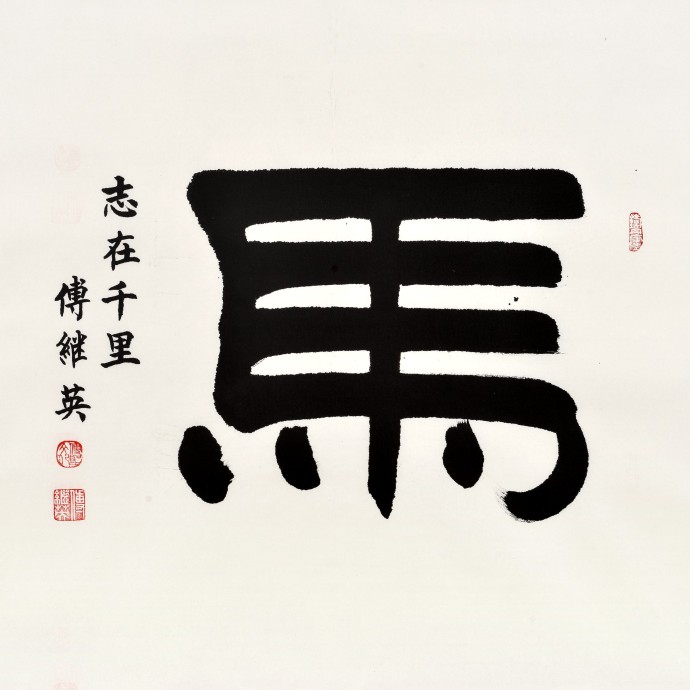 馬
志在千里
傅繼英